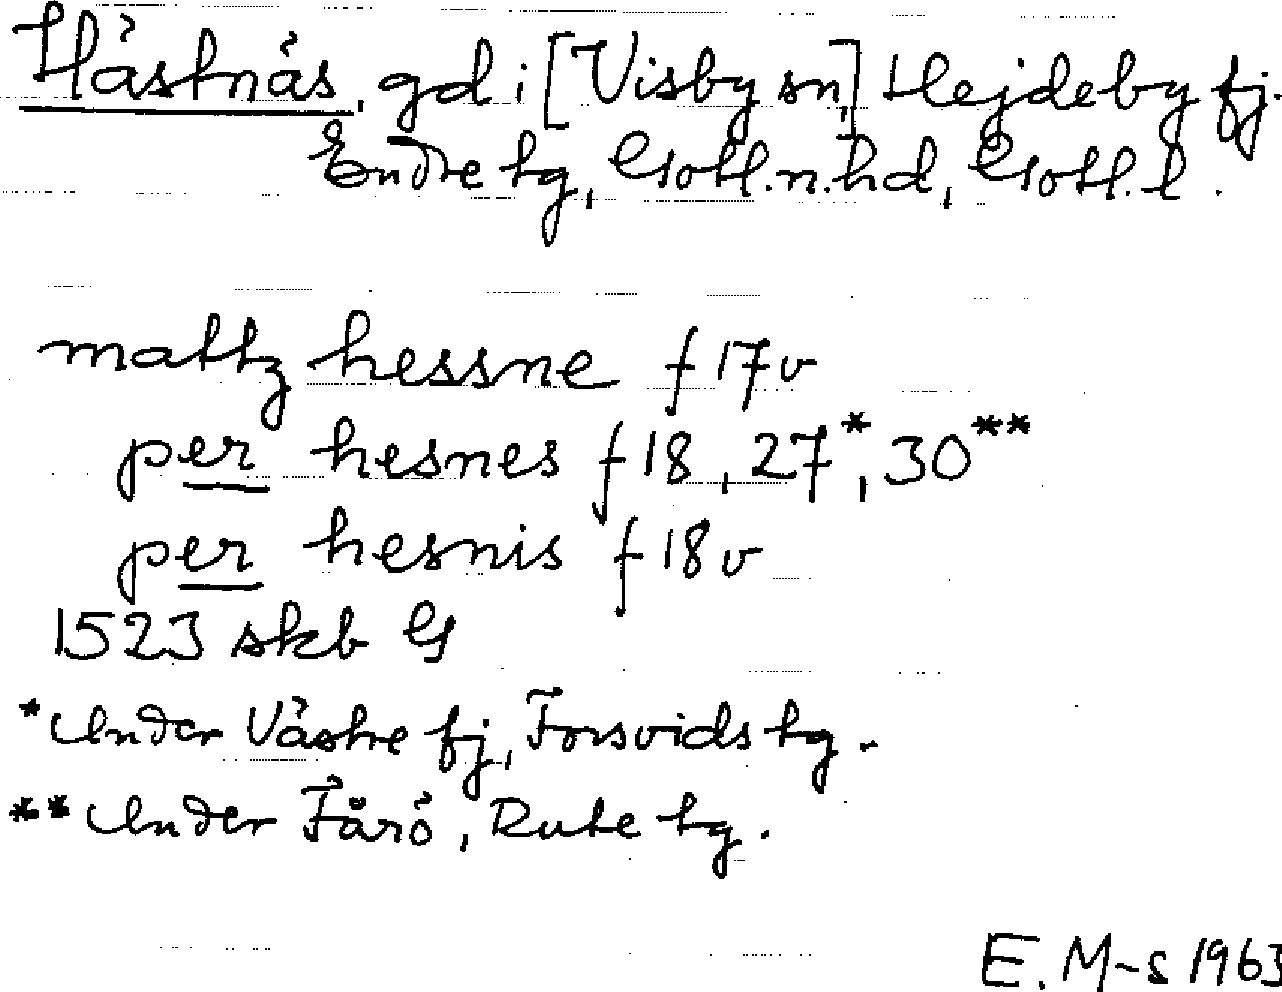 Hästnäs, gd i [Visby sn] Hejdeby fj.
Endre tg, Gotl.n.hd, Gotl.l.
mattz hessne f 17v
per hesnes f 18, 27*, 30**
per hesnis f 18v
1523 skb G
*Under Västre fj, Forsvids tg.
**Under Fårö, Rute tg.
E. M-s 1963